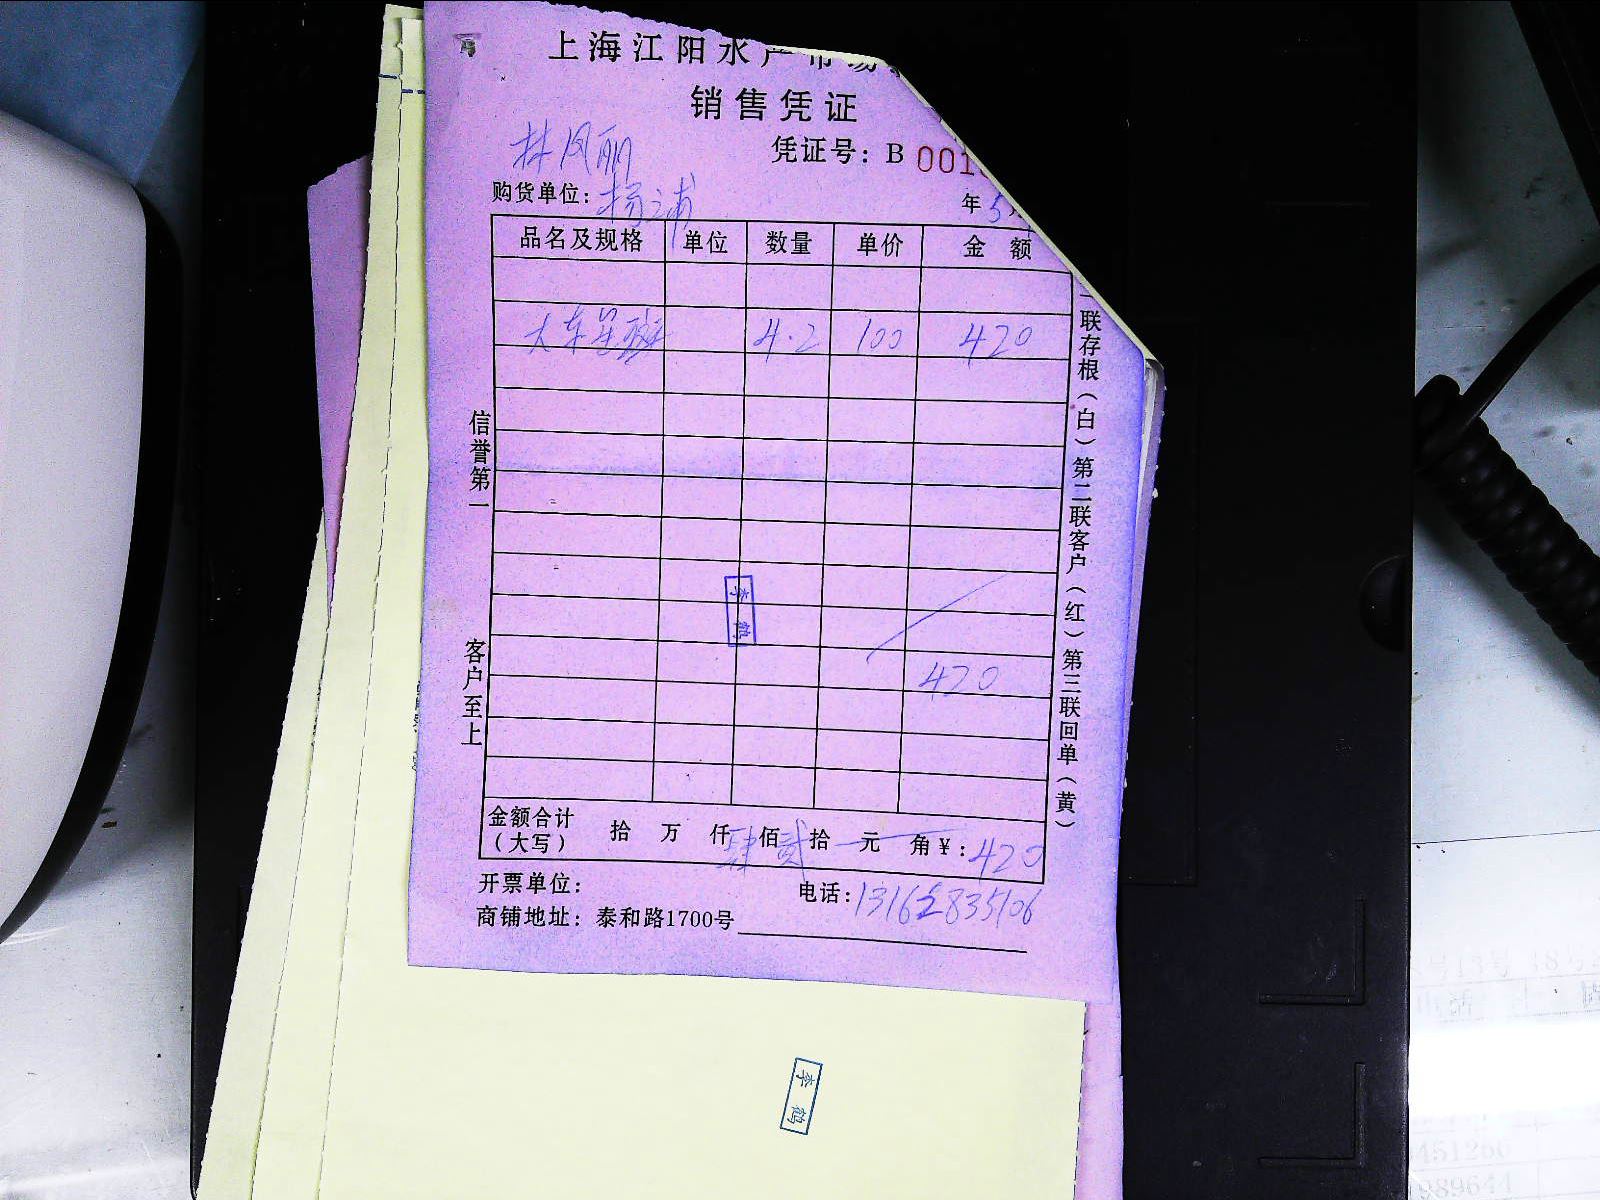 上海江阳水产市场
销售凭证
林凤丽
凭证号：B 001
购货单位：杨浦
年 5
品名及规格 单位 数量 单价 金额
大东星斑 4.2 100 420
420
信誉第一
客户至上
一联存根（白）第二联客户（红）第三联回单（黄）
李鹤
金额合计（大写） 拾 万 仟 肆 佰 贰 拾 元 角 ¥：420
开票单位： 电话：13162835106
商铺地址：泰和路1700号
李鹤
451266
989644